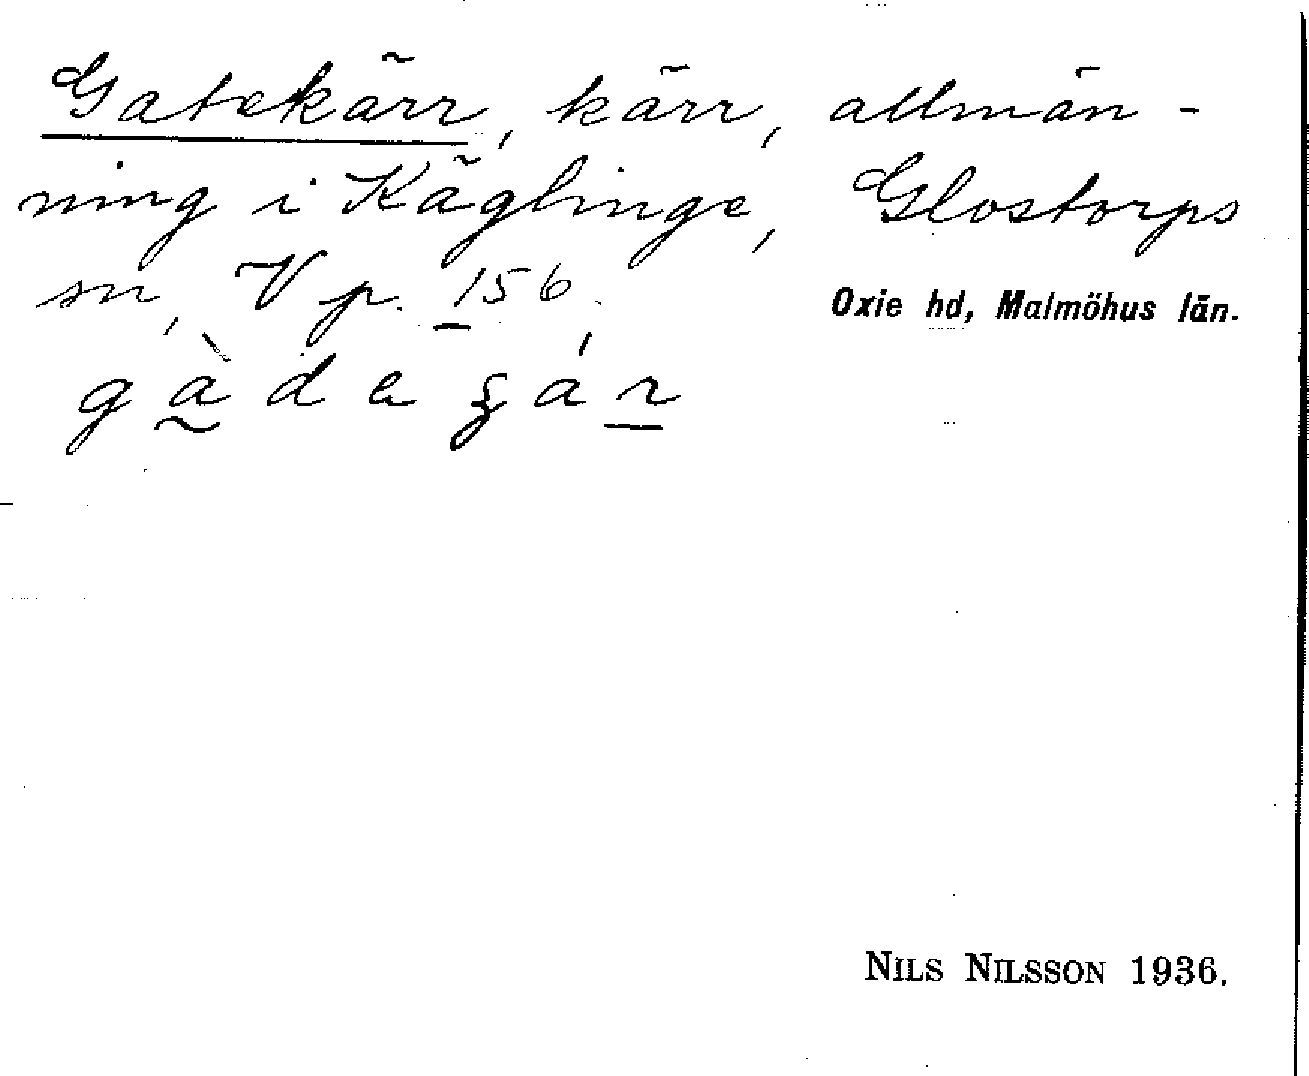 Gatekärr, kärr, allmän-
ning i Käglinge, Glostorps
sn, V p. 156.
Oxie hd, Malmöhus län.
NILS NILSSON 1936.